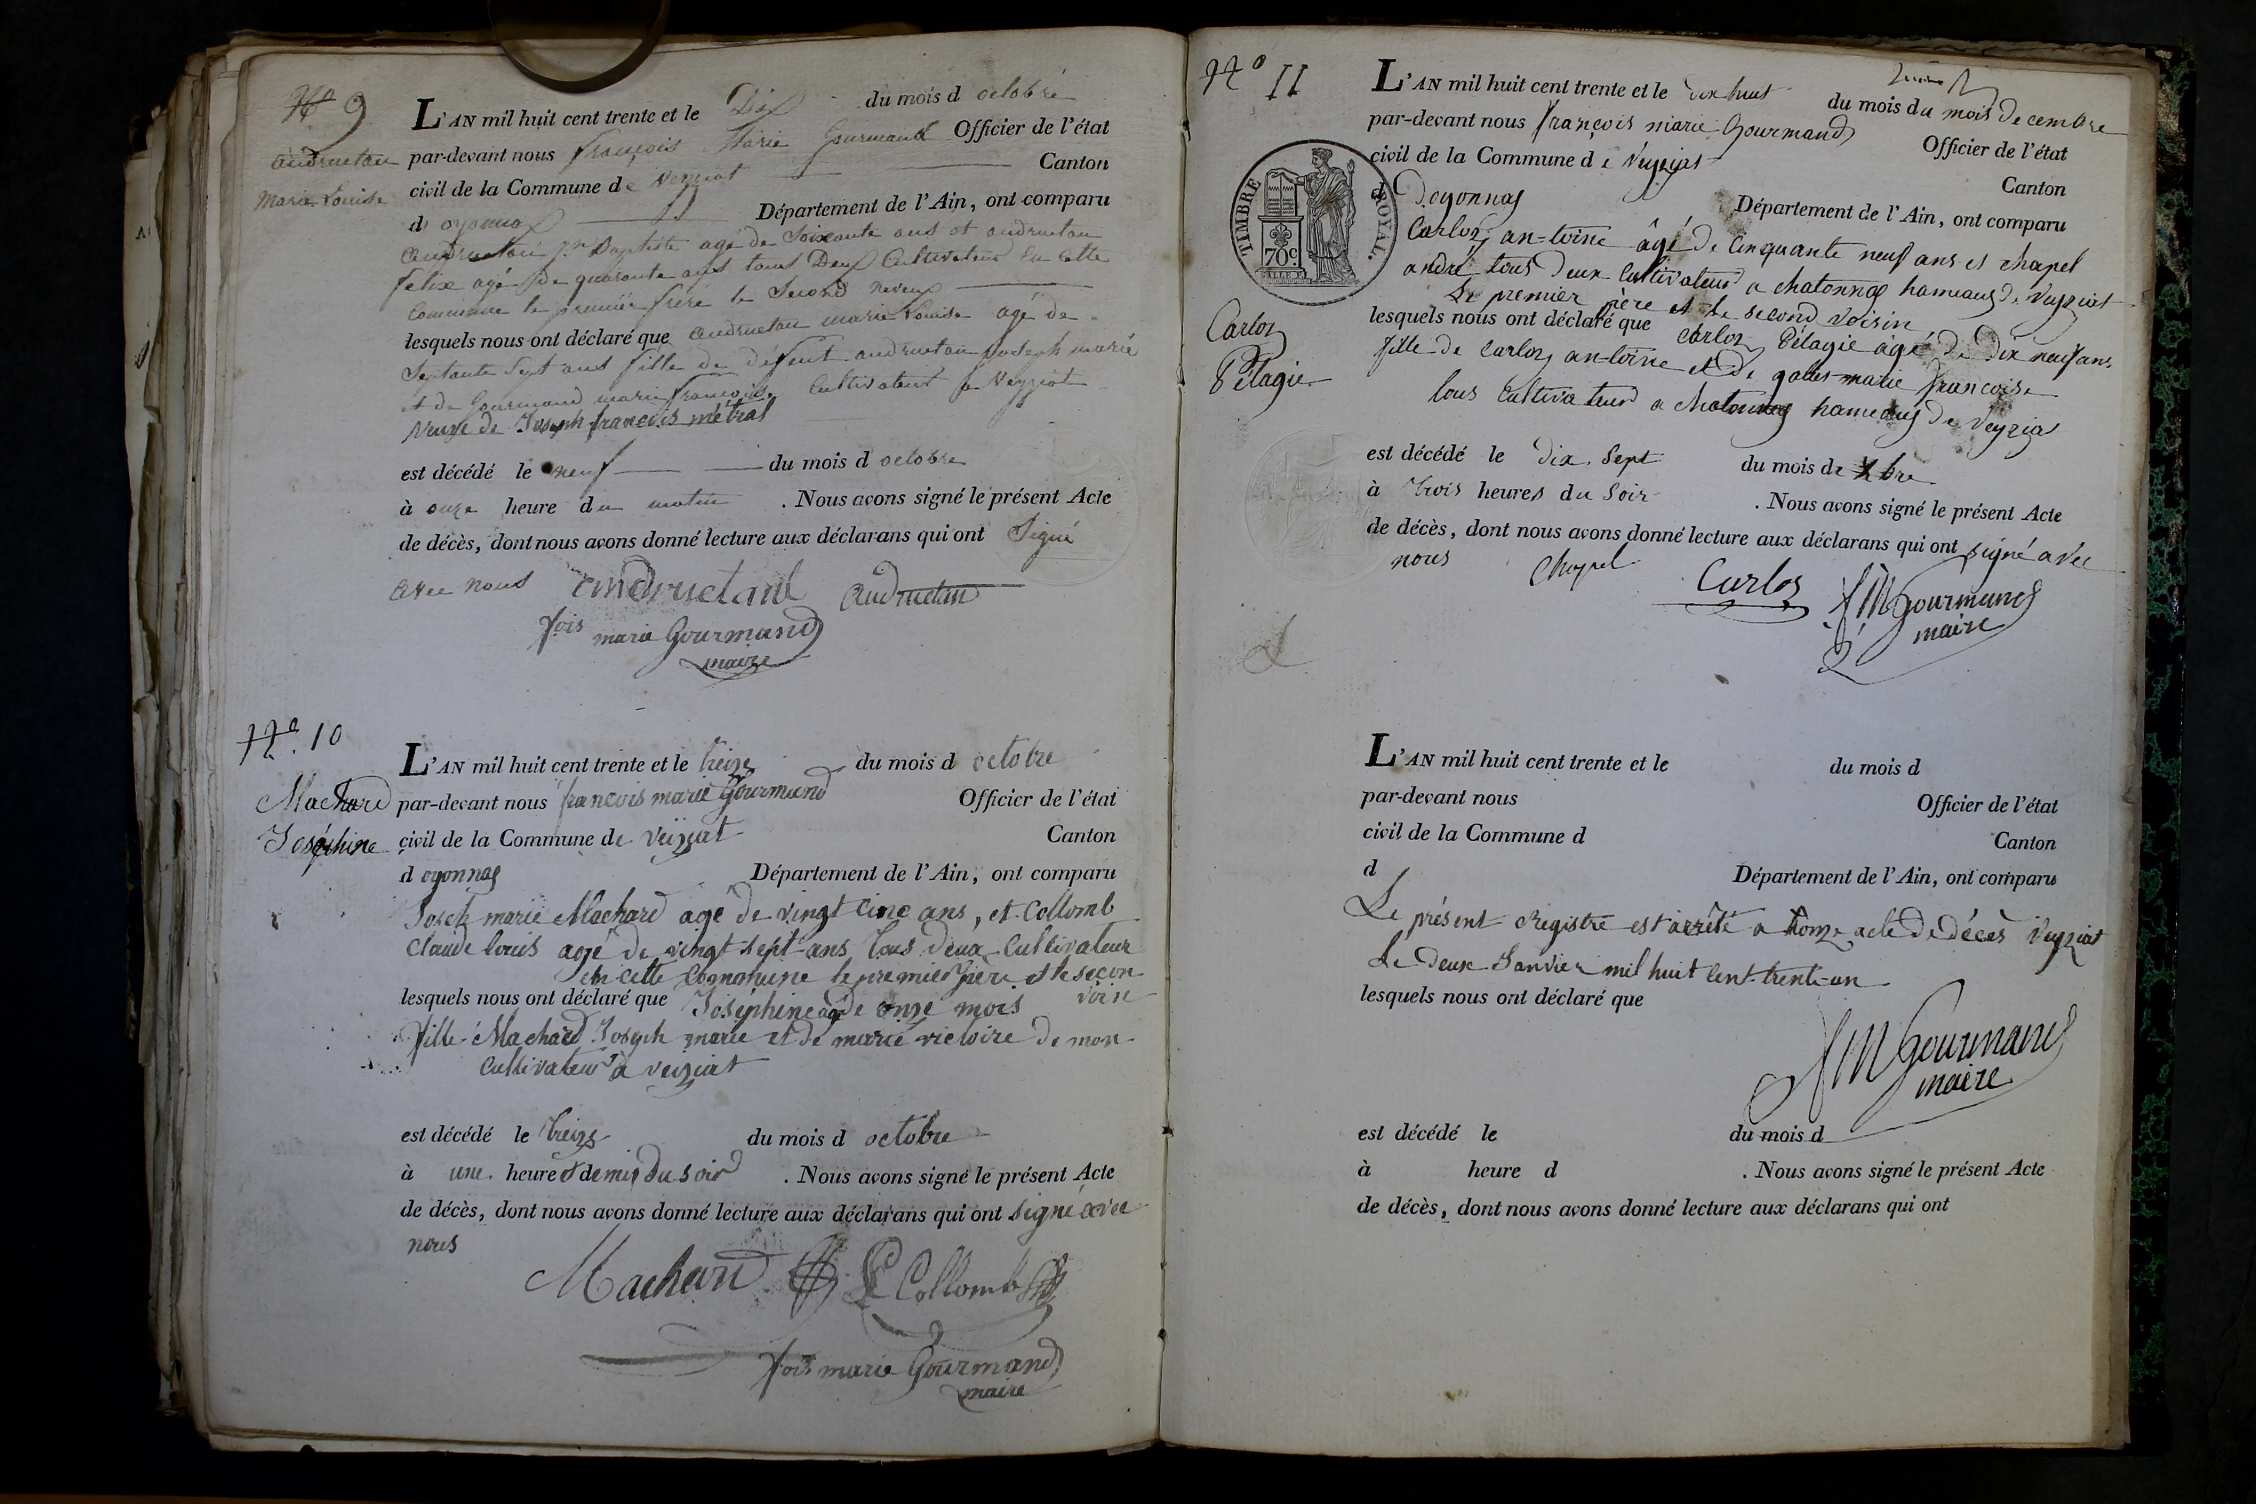 N° 9
andruetan
Marie Louise
L'AN mil huit cent trente et le Dix du mois d octobre
par-devant nous françois Marie Gourmand Officier de l'état
civil de la Commune de Veyziat Canton
d oyonnax Département de l'Ain, ont comparu
andruetan Jn Baptiste agé de Soixante ans et andruetan
felix agé de quarante ans tous Deux Cultivateur En Cette
Commune le premier frère le Second neveux
lesquels nous ont déclaré que andruetan marie Louise agé de
Septante Sept ans fille de défunt andruetan joseph marie
et de Gourmand marie françoise Cultivateur a Veyziat
veuve de Joseph françois métral
est décédé le neuf du mois d octobre
à onze heure du matin . Nous avons signé le présent Acte
de décès, dont nous avons donné lecture aux déclarans qui ont Signé
avec nous andruetant andruetan
fois marie Gourmand
maire
N° 10
Machard
Joséphine
L'AN mil huit cent trente et le treize du mois d octobre
par-devant nous françois marie Gourmand Officier de l'état
civil de la Commune de Veiziat Canton
d oyonnax Département de l'Ain, ont comparu
Joseh marie Machard agé de vingt cinc ans, et Collomb
Claude louis agé de vingt sept ans tous deux Cultivateur
en cette Commune le premier père et le secon
lesquels nous ont déclaré que Joséphine agé de onze mois voisin
fille Machard Joseph marie et de marie victoire de mon
Cultivateur a veiziat
est décédé le treize du mois d octobre
à une heure et demie du soir . Nous avons signé le présent Acte
de décès, dont nous avons donné lecture aux déclarans qui ont signé avec
nous
Machard Collomb
fois marie Gourmand
maire
N° 11
L'AN mil huit cent trente et le dix huit du mois du mois de cembre
par-devant nous françois marie Gourmand Officier de l'état
civil de la Commune de Veyziat Canton
d Doyonnax Département de l'Ain, ont comparu
TIMBRE ROYAL.
70c.
Carloz
Pélagie
Carloz an-toine âgé De Cinquante neuf ans et chapel
andré tous deux Cultivateur a chatonnax hameaux de Veyziat
Le premier père et le second voisin
lesquels nous ont déclaré que Carloz Pélagie agé de Dix neuf ans
fille de Carloz an-toine et de marie françoise
tous Cultivateur a chatonnax hameaux de Veyzia
est décédé le dix sept du mois de xbre
à trois heures du soir . Nous avons signé le présent Acte
de décès, dont nous avons donné lecture aux déclarans qui ont signé avec
nous Chapel Carloz fM Gourmand
maire
L'AN mil huit cent trente et le du mois d
par-devant nous Officier de l'état
civil de la Commune d Canton
d Département de l'Ain, ont comparu
Le présent Registre est arrêté a honze acte De décès Veyziat
Le deux Janvier mil huit Cent trente-un
lesquels nous ont déclaré que
fM Gourmand
maire
est décédé le du mois d
à heure d . Nous avons signé le présent Acte
de décès, dont nous avons donné lecture aux déclarans qui ont